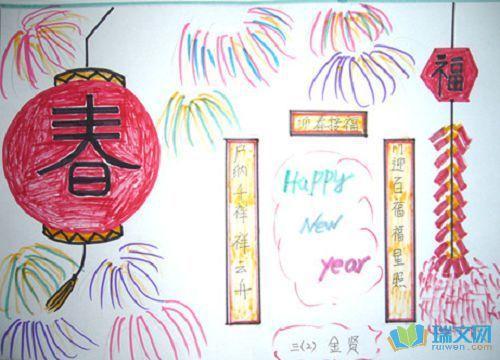 春
福
迎春接福
户纳千祥祥云
门迎百福福星照
Happy
New
year
三(2) 金贤
瑞文网
ruiwen.com